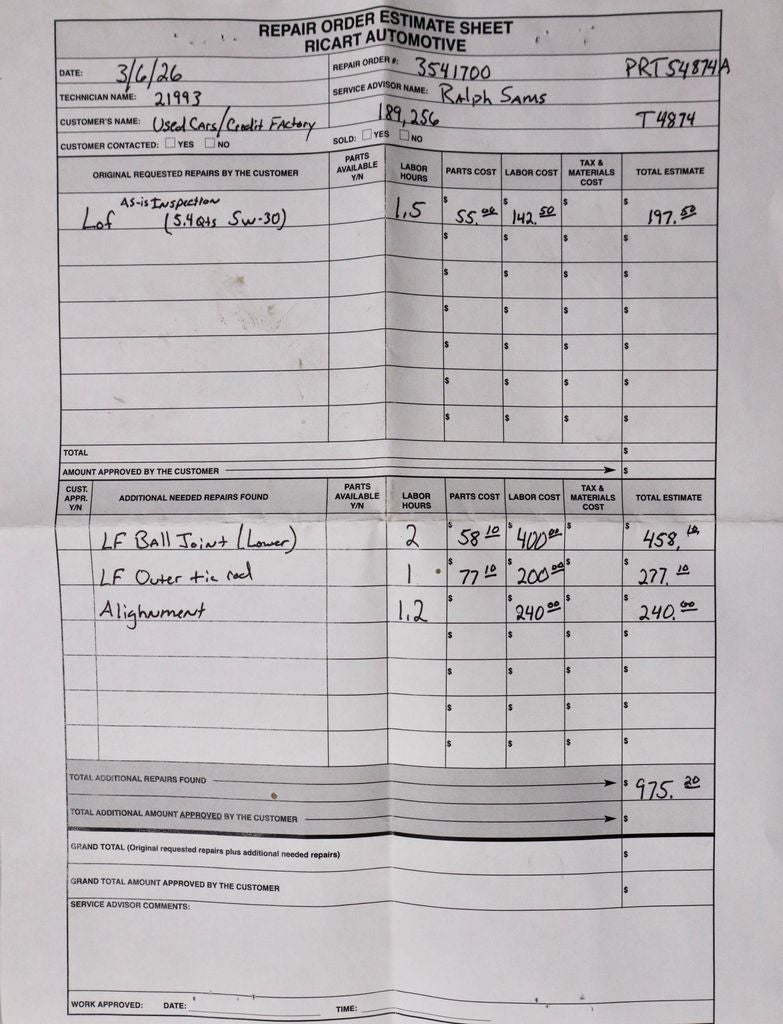 REPAIR ORDER ESTIMATE SHEET
RICART AUTOMOTIVE
DATE: 3/6/26 REPAIR ORDER #: 3541700 PRT54874A
TECHNICIAN NAME: 21993 SERVICE ADVISOR NAME: Ralph Sams
CUSTOMER'S NAME: Used Cars/Credit Factory 189,256 T4874
CUSTOMER CONTACTED: YES NO SOLD: YES NO
ORIGINAL REQUESTED REPAIRS BY THE CUSTOMER PARTS AVAILABLE Y/N LABOR HOURS PARTS COST LABOR COST TAX & MATERIALS COST TOTAL ESTIMATE
As-is Inspection
Lof (5.4 Qts 5w-30) 1.5 $ 55.00 $ 142.50 $ $ 197.50
$ $ $ $
$ $ $ $
$ $ $ $
$ $ $ $
$ $ $ $
$ $ $ $
TOTAL $
AMOUNT APPROVED BY THE CUSTOMER $
CUST. APPR. Y/N ADDITIONAL NEEDED REPAIRS FOUND PARTS AVAILABLE Y/N LABOR HOURS PARTS COST LABOR COST TAX & MATERIALS COST TOTAL ESTIMATE
LF Ball Joint (Lower) 2 $ 58.10 $ 400.00 $ $ 458.10
LF Outer tie rod 1 $ 77.10 $ 200.00 $ $ 277.10
Alighnment 1.2 $ $ 240.00 $ $ 240.00
$ $ $ $
$ $ $ $
$ $ $ $
$ $ $ $
TOTAL ADDITIONAL REPAIRS FOUND $ 975.20
TOTAL ADDITIONAL AMOUNT APPROVED BY THE CUSTOMER $
GRAND TOTAL (Original requested repairs plus additional needed repairs) $
GRAND TOTAL AMOUNT APPROVED BY THE CUSTOMER $
SERVICE ADVISOR COMMENTS:
WORK APPROVED: DATE: TIME: